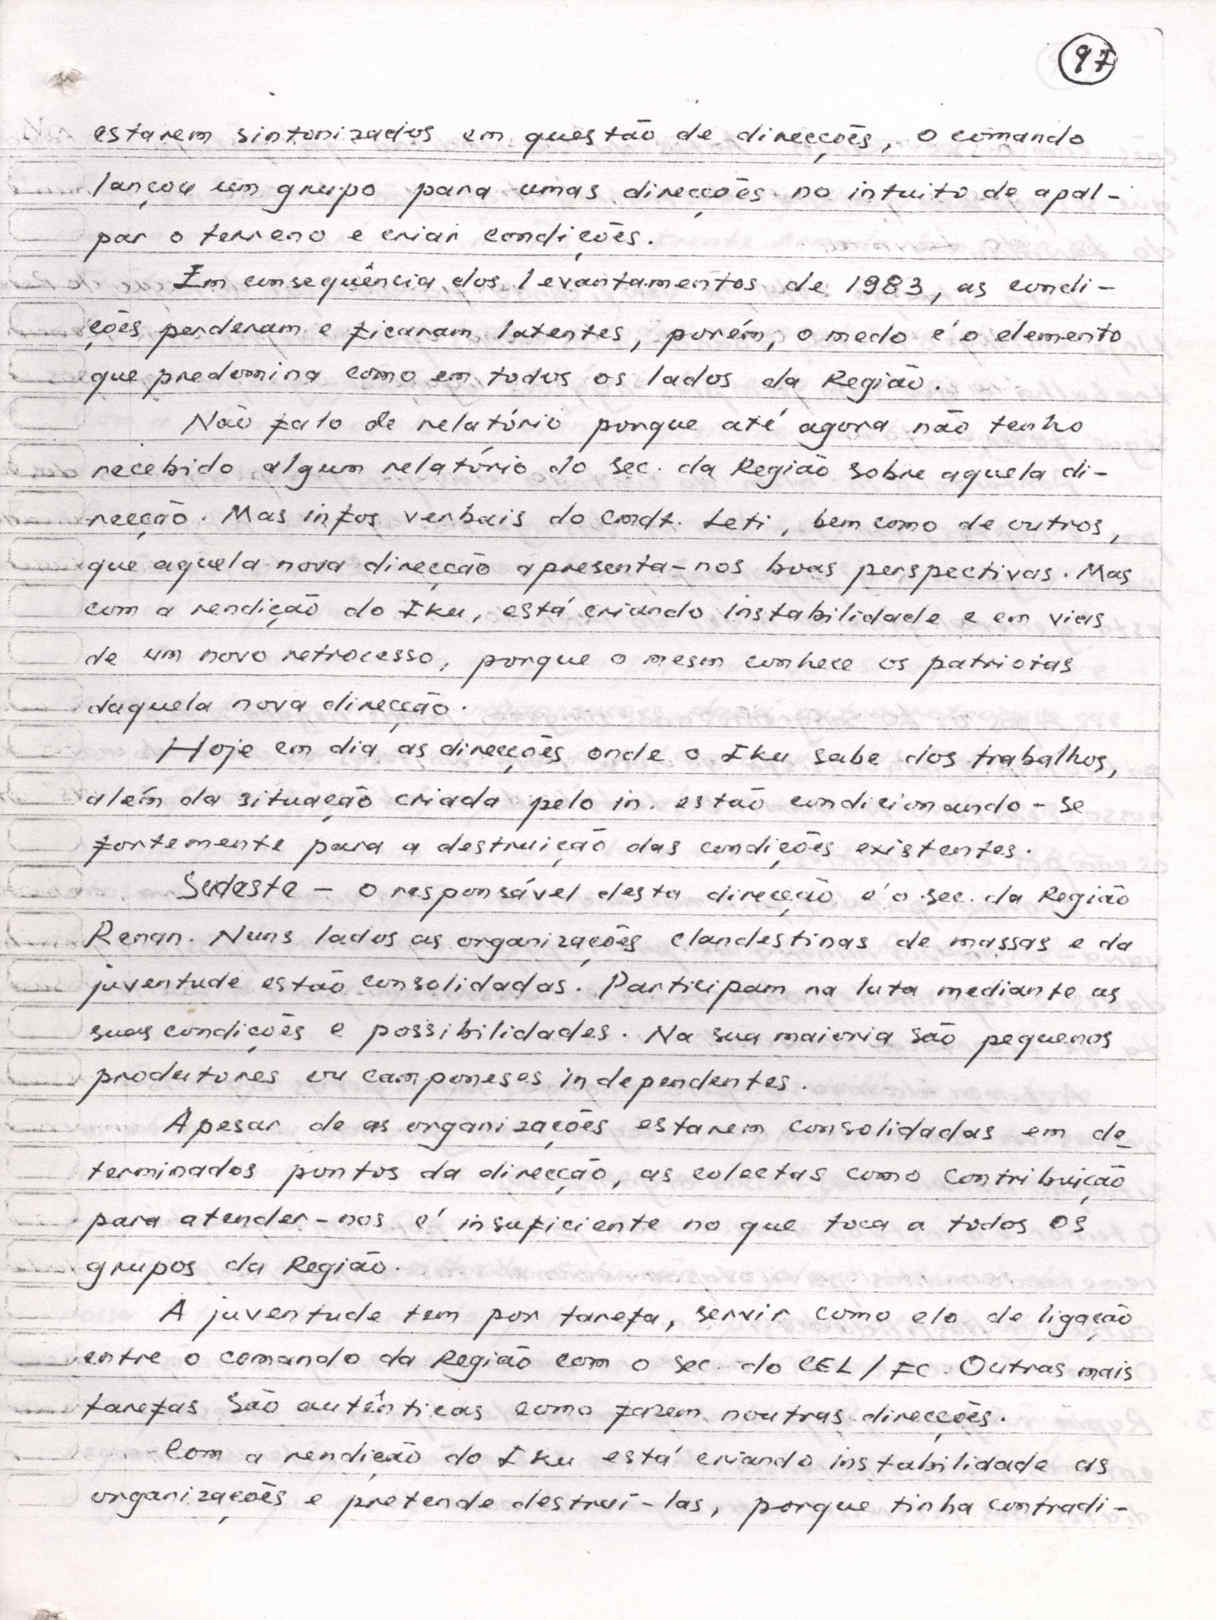 97
estarem sintonizados em questão de direcções, o comando
lançou um grupo para umas direcções no intuito de apal-
par o terreno e criar condições.
Em consequência dos levantamentos de 1983, as condi-
ções perderam e ficaram latentes, porém, o medo é o elemento
que predomina como em todos os lados da Região.
Não falo de relatório porque até agora não tenho
recebido algum relatório do sec. da Região sobre aquela di-
recção. Mas infos verbais do cmdt. Leti, bem como de outros,
que aquela nova direcção apresenta-nos boas perspectivas. Mas
com a rendição do Iku, está criando instabilidade e em vias
de um novo retrocesso, porque o mesm conhece os patriotas
daquela nova direcção.
Hoje em dia as direcções onde o Iku sabe dos trabalhos,
além da situação criada pelo in. estão condicionando-se
fortemente para a destruição das condições existentes.
Sudeste - O responsável desta direcção é o sec. da Região
Renan. Nuns lados as organizações clandestinas de massas e da
juventude estão consolidadas. Participam na luta mediante as
suas condições e possibilidades. Na sua maioria são pequenos
produtores ou camponeses independentes.
Apesar de as organizações estarem consolidadas em de
terminados pontos da direcção, as colectas como contribuição
para atender-nos é insuficiente no que toca a todos os
grupos da Região.
A juventude tem por tarefa, servir como elo de ligação
entre o comando da Região com o sec. do CEL/FC. Outras mais
tarefas são autênticas como fazem noutras direcções.
Com a rendição do Iku está criando instabilidade as
organizações e pretende destruí-las, porque tinha contradi-